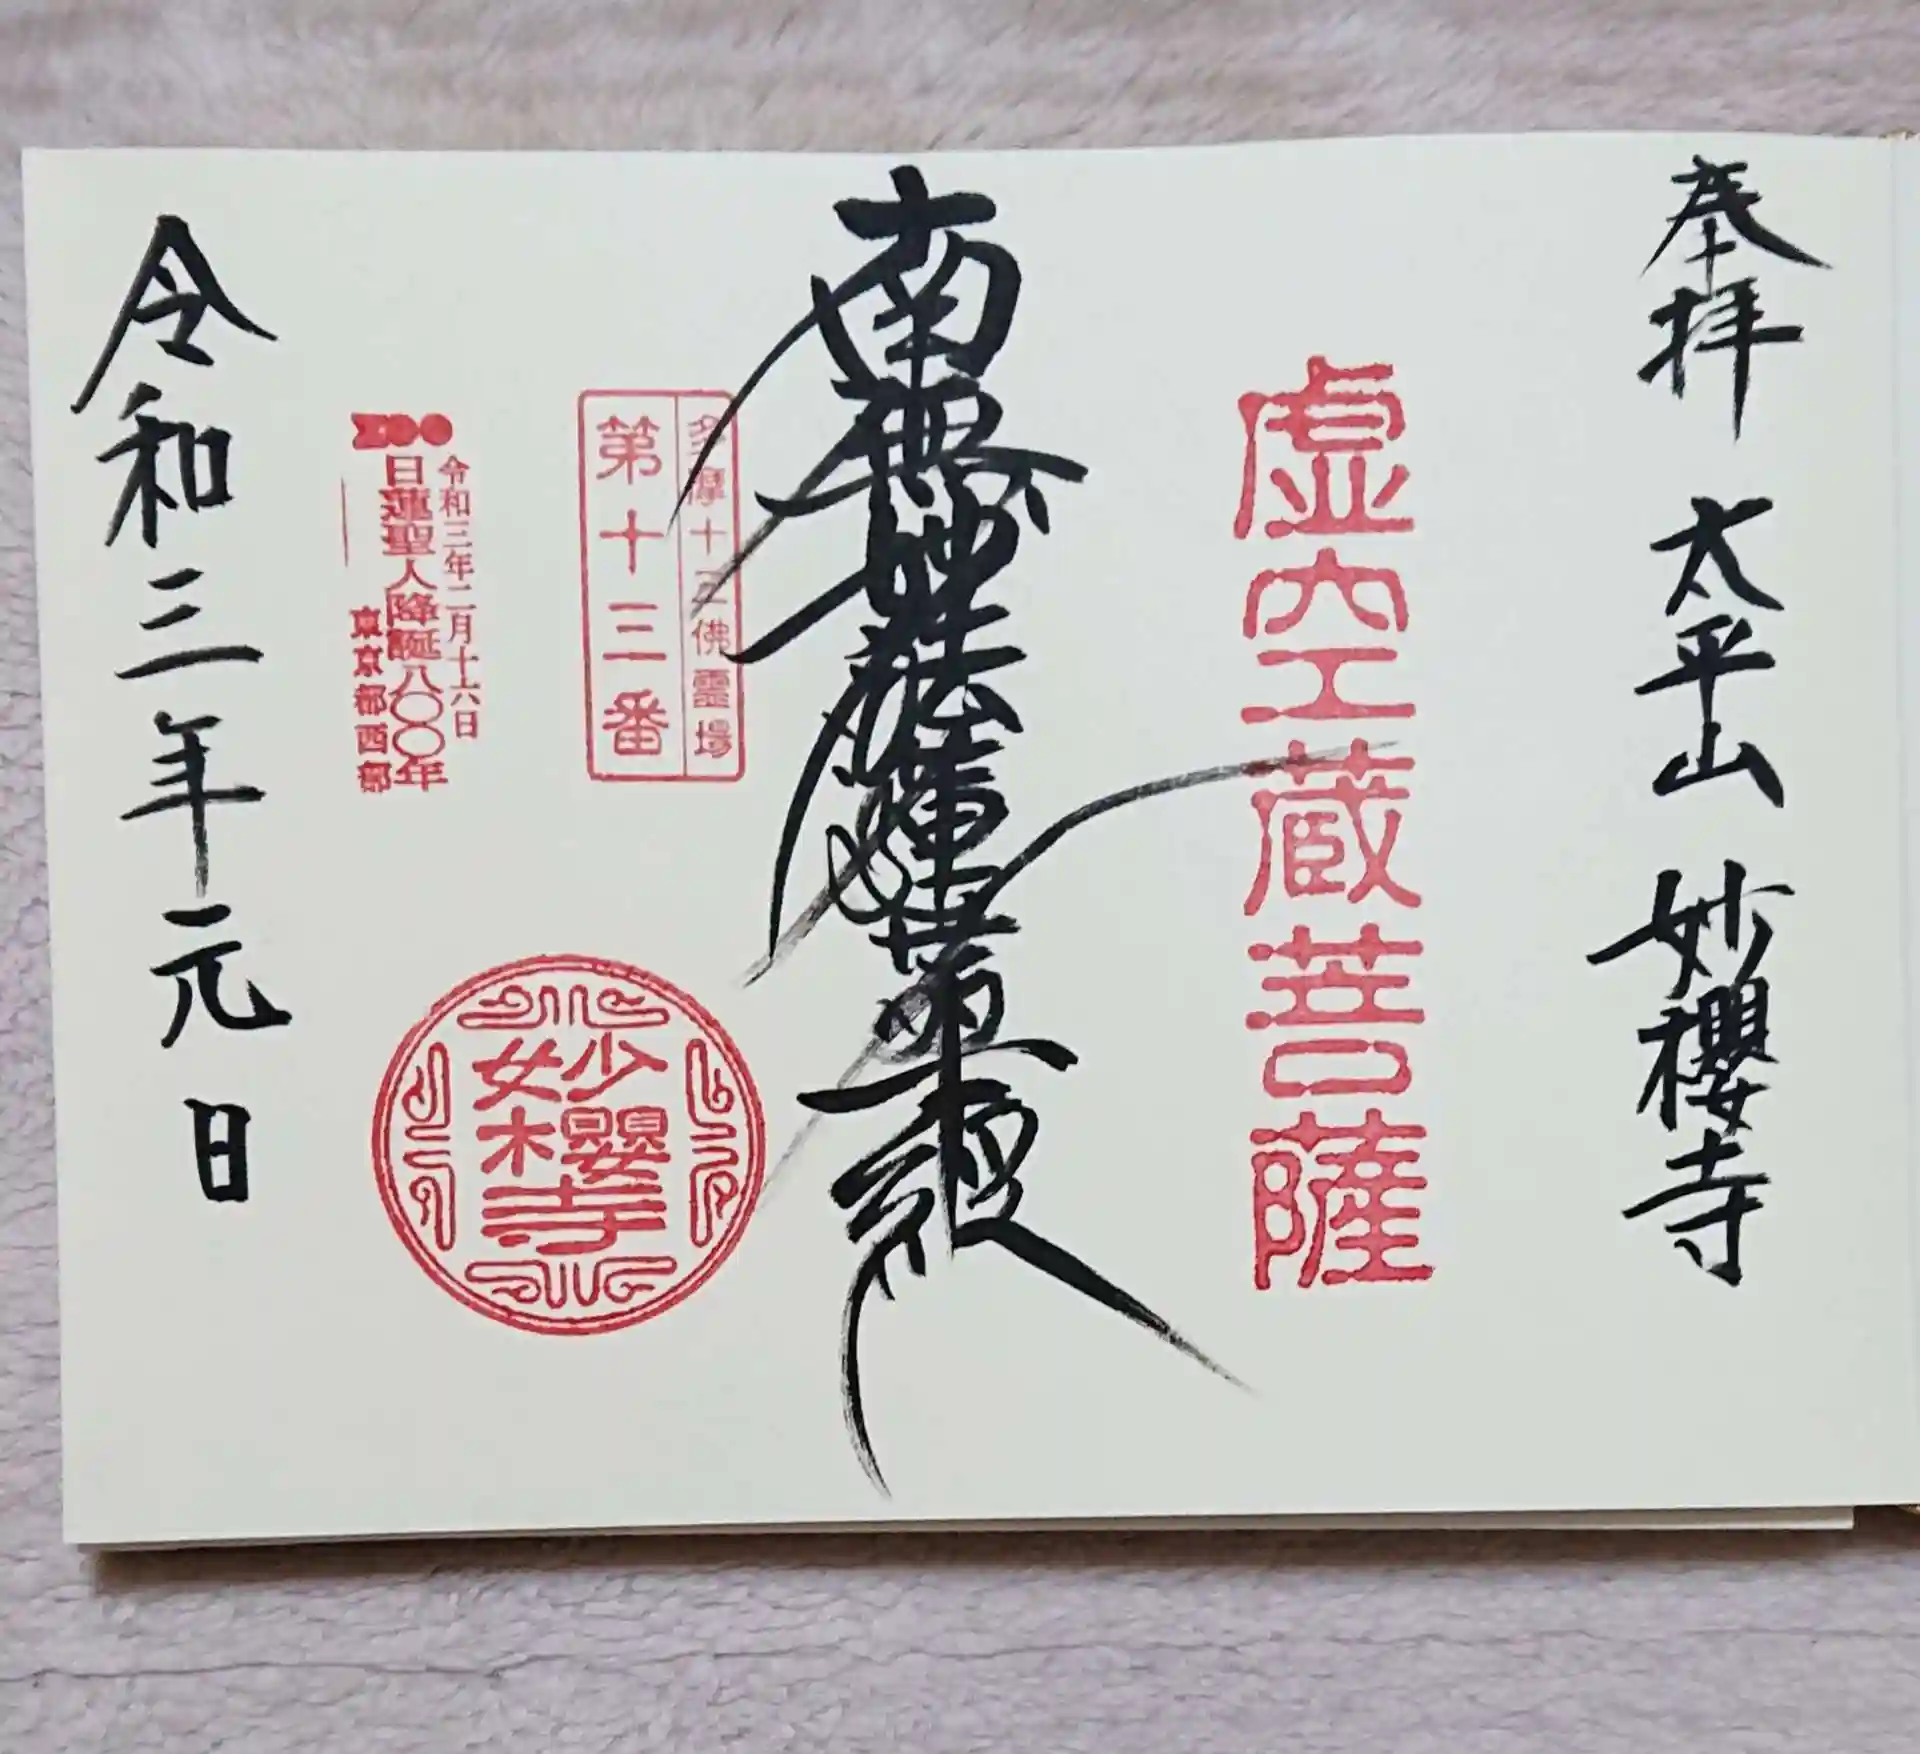 奉拝 太平山 妙櫻寺
虚空蔵菩薩
南無妙法蓮華経
多摩十三佛霊場
第十三番
妙櫻寺
令和三年二月十六日
日蓮聖人降誕八〇〇年
東京都西部
令和三年元日